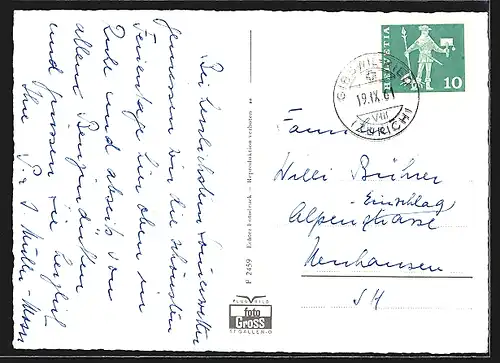 Bei herrlichstem Sommerwetter
geniessen wir die schönsten
Ferientage hier oben in
Ruhe und abseits von
allem
und grüssen Sie herzlich
Ihre P. & J. Müller-Moser
F 2459 Echter Fotodruck – Reproduktion verboten
FLUGBILD
foto
Gross
ST. GALLEN-O
HELVETIA
10
19.IX.61
VIII
(ZÜRICH)
Fam.
Willi Bührer
Einschlag
Alpenstrasse
Neuhausen
SH